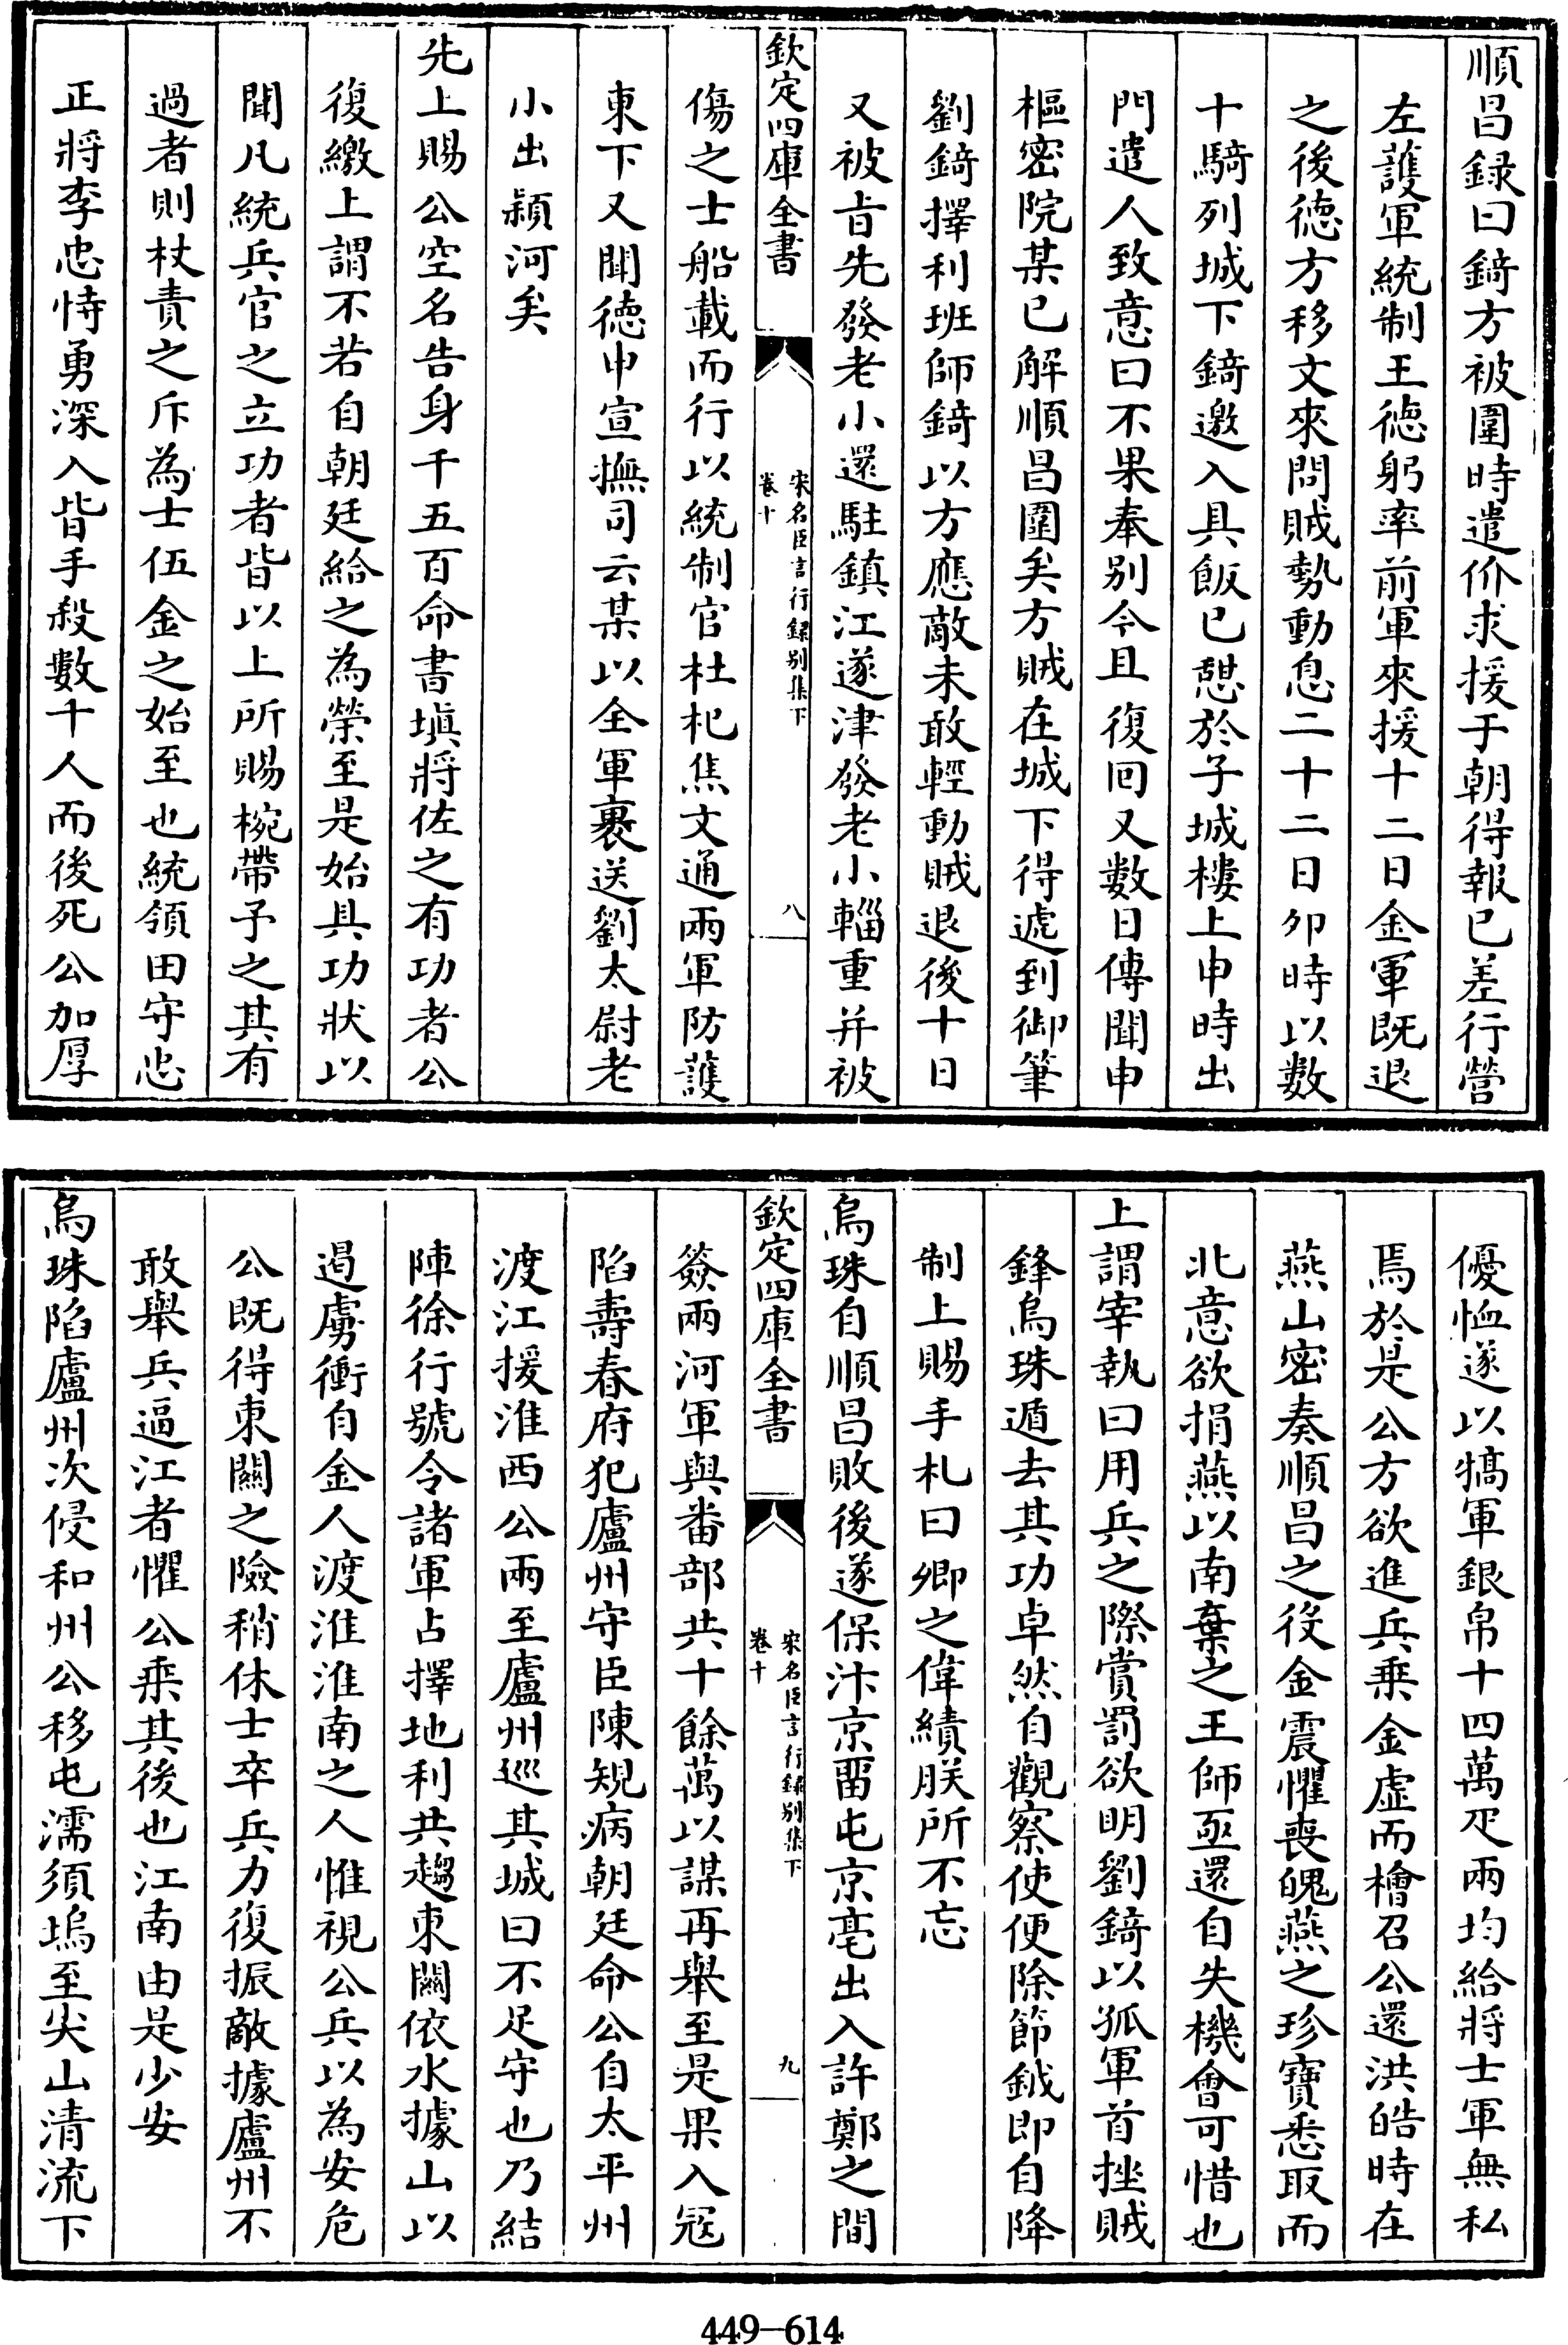 順昌録曰錡方被圍時遣价求援于朝得報已差行營
左䕶軍統制王徳躬率前軍來援十二日金軍既退
之後徳方移文來問賊勢動息二十二日夘時以數
十騎列城下錡邀入具飯已憇於子城樓上申時出
門遣人致意曰不果奉别今且復囘又數日傳聞申
樞密院某已解順昌圍矣方賊在城下得遞到御筆
劉錡擇利班師錡以方應敵未敢輕動賊退後十日
又被㫖先發老小還駐鎮江遂津發老小輜重并被
欽定四庫全書
宋名臣言行録别集下
卷十
八
傷之士船載而行以統制官杜杞焦文通兩軍防䕶
東下又聞徳申宣撫司云某以全軍裹送劉太尉老
小出潁河矣
先上賜公空名告身千五百命書填將佐之有功者公
復繳上謂不若自朝廷給之為榮至是始具功狀以
聞凡統兵官之立功者皆以上所賜椀帶予之其有
過者則杖責之斥為士伍金之始至也統領田守忠
正將李忠恃勇深入皆手殺數千人而後死公加厚
優恤遂以犒軍銀帛十四萬疋兩均給將士軍無私
焉於是公方欲進兵乗金虛而檜召公還洪皓時在
燕山密奏順昌之役金震懼喪魄燕之珍寶悉取而
北意欲捐燕以南棄之王師亟還自失機會可惜也
上謂宰執曰用兵之際賞罰欲明劉錡以孤軍首挫賊
鋒烏珠遁去其功卓然自觀察使便除節鉞即自降
制上賜手札曰卿之偉績朕所不忘
烏珠自順昌敗後遂保汴京畱屯京亳出入許鄭之間
欽定四庫全書
宋名臣言行録别集下
卷十
九
簽兩河軍與畨部共十餘萬以謀再舉至是果入寇
陷壽春府犯廬州守臣陳規病朝廷命公自太平州
渡江援淮西公兩至廬州巡其城曰不足守也乃結
陣徐行號令諸軍占擇地利共趨東關依水據山以
遏虜衝自金人渡淮淮南之人惟視公兵以為安危
公既得東關之險稍休士卒兵力復振敵據廬州不
敢舉兵逼江者懼公乗其後也江南由是少安
烏珠陷廬州次侵和州公移屯濡須塢至尖山清流下
449—614